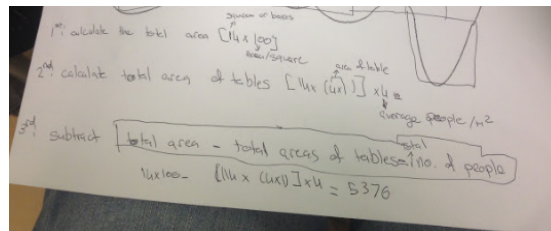 square or boxes
1st: calculate the total area [14 x 100]
area/square
area of table
2nd calculate total area of tables [14x (4x1)] x4 =
average people /m2
3rd: subtract total area - total areas of tables = total no. of people
14x100- [14 x (4x1)] x4 = 5376